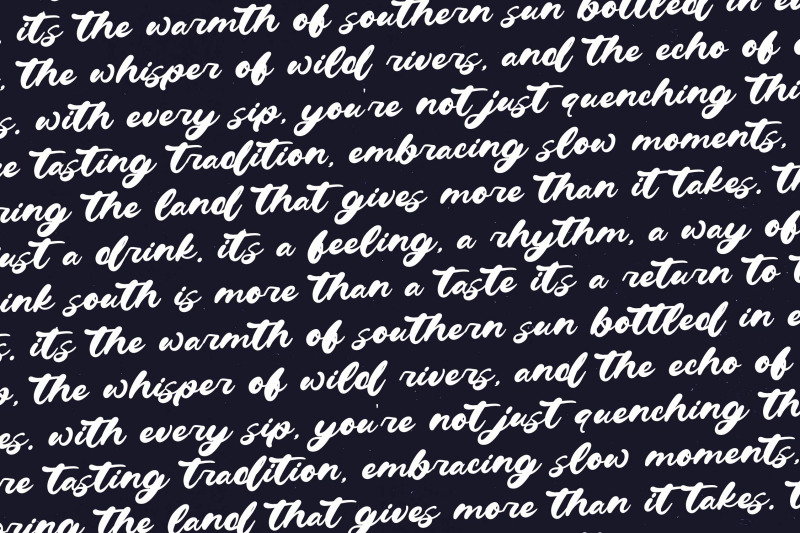 its the warmth of southern sun bottled in
, the whisper of wild rivers, and the echo of
s. with every sip, you're not just quenching
tasting tradition, embracing slow moments,
the land that gives more than it takes.
a drink. its a feeling, a rhythm, a way of
south is more than a taste its a return to
s. its the warmth of southern sun bottled in
, the whisper of wild rivers, and the echo of
es. with every sip, you're not just quenching
tasting tradition, embracing slow moments,
the land that gives more than it takes.